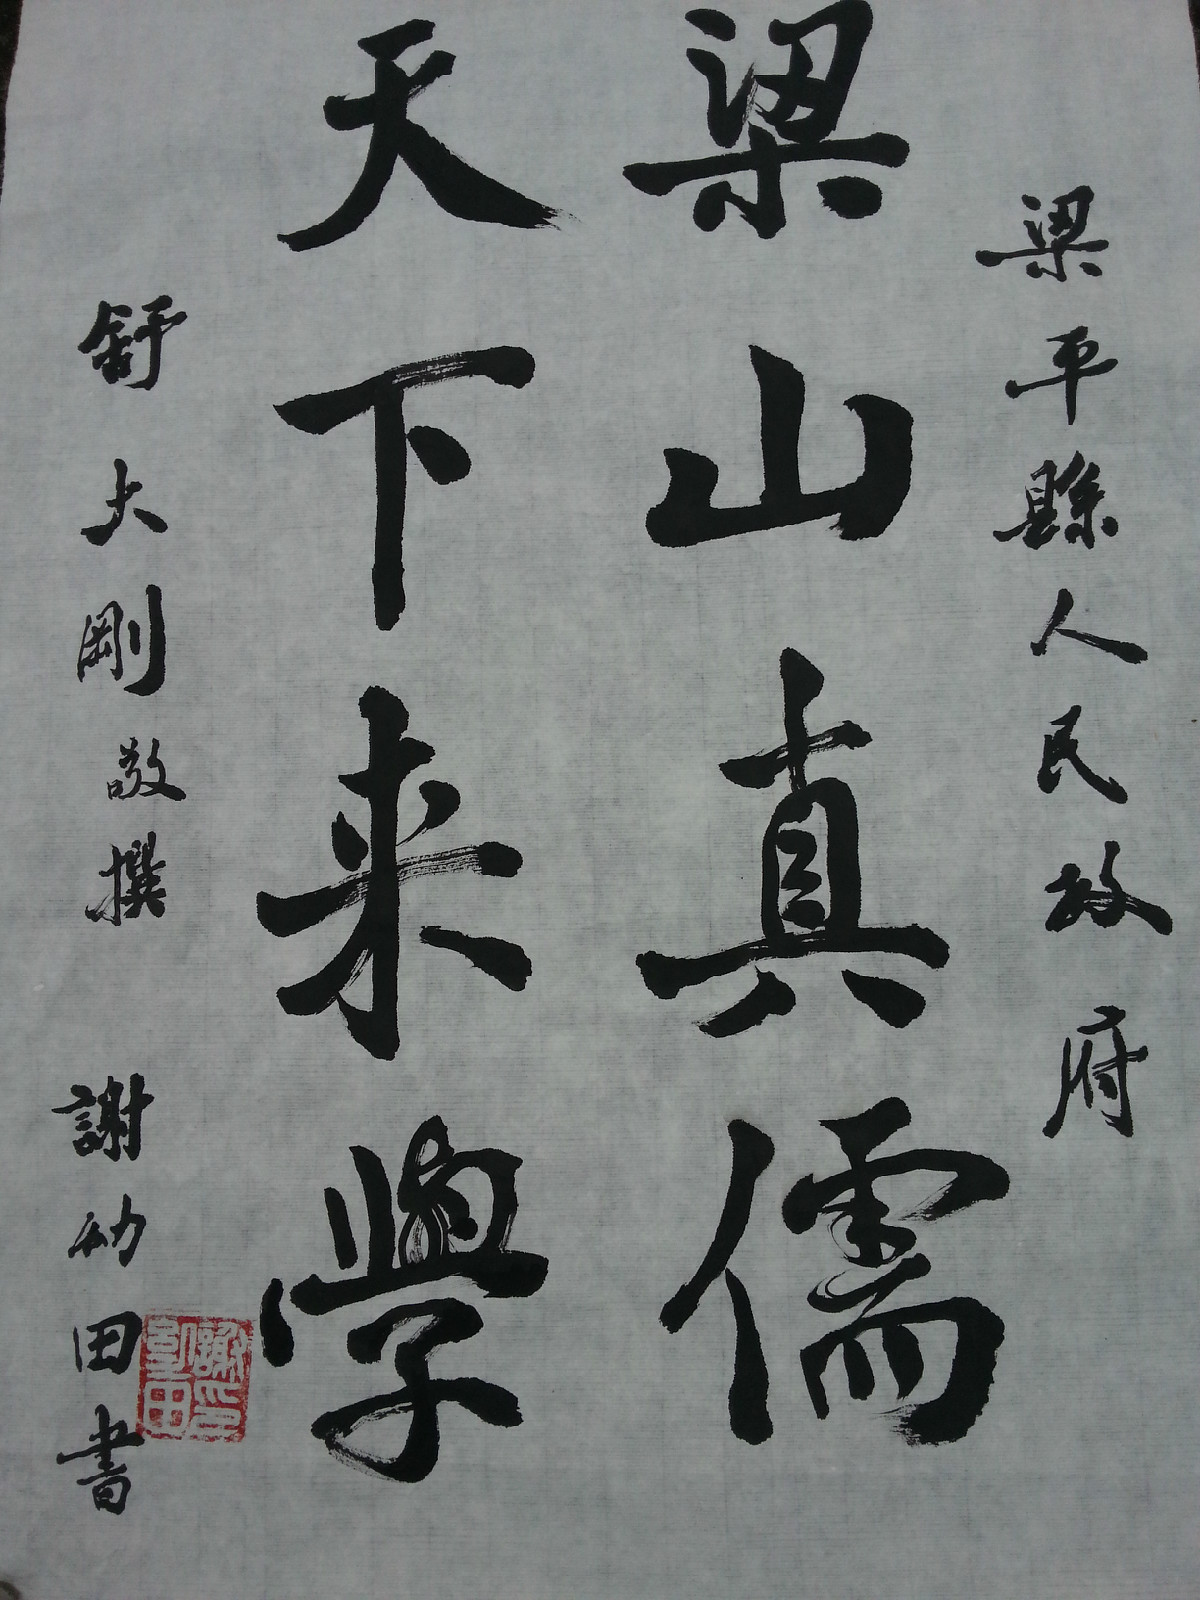 梁平縣人民政府
梁山真儒
天下来學
舒大剛敬撰 謝幼田書